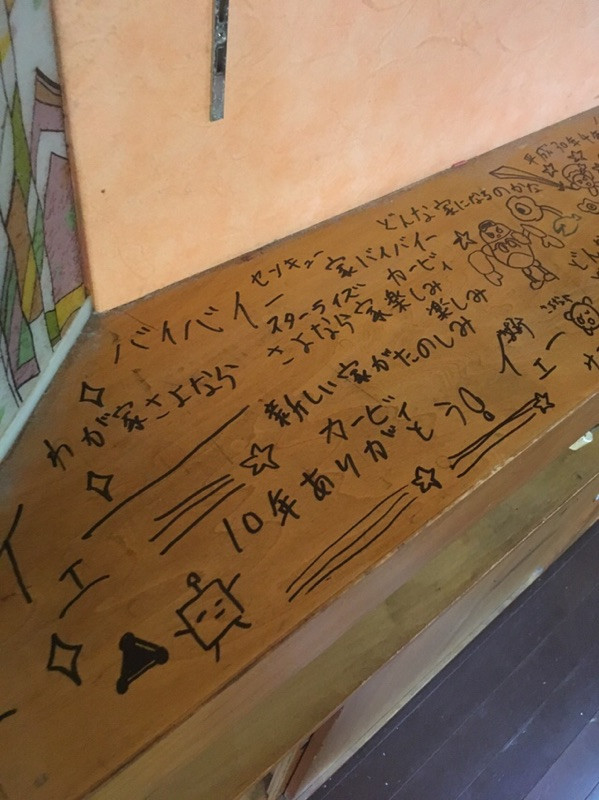 平成30年
どんな家になるのかな
センキュー 家バイバイ
バイバイー スターライズ カービィ
わが家さよなら さよなら家楽しみ
楽しみ
新しい家がたのしみ
カービィ
10年ありがとう!
イェー
イェ